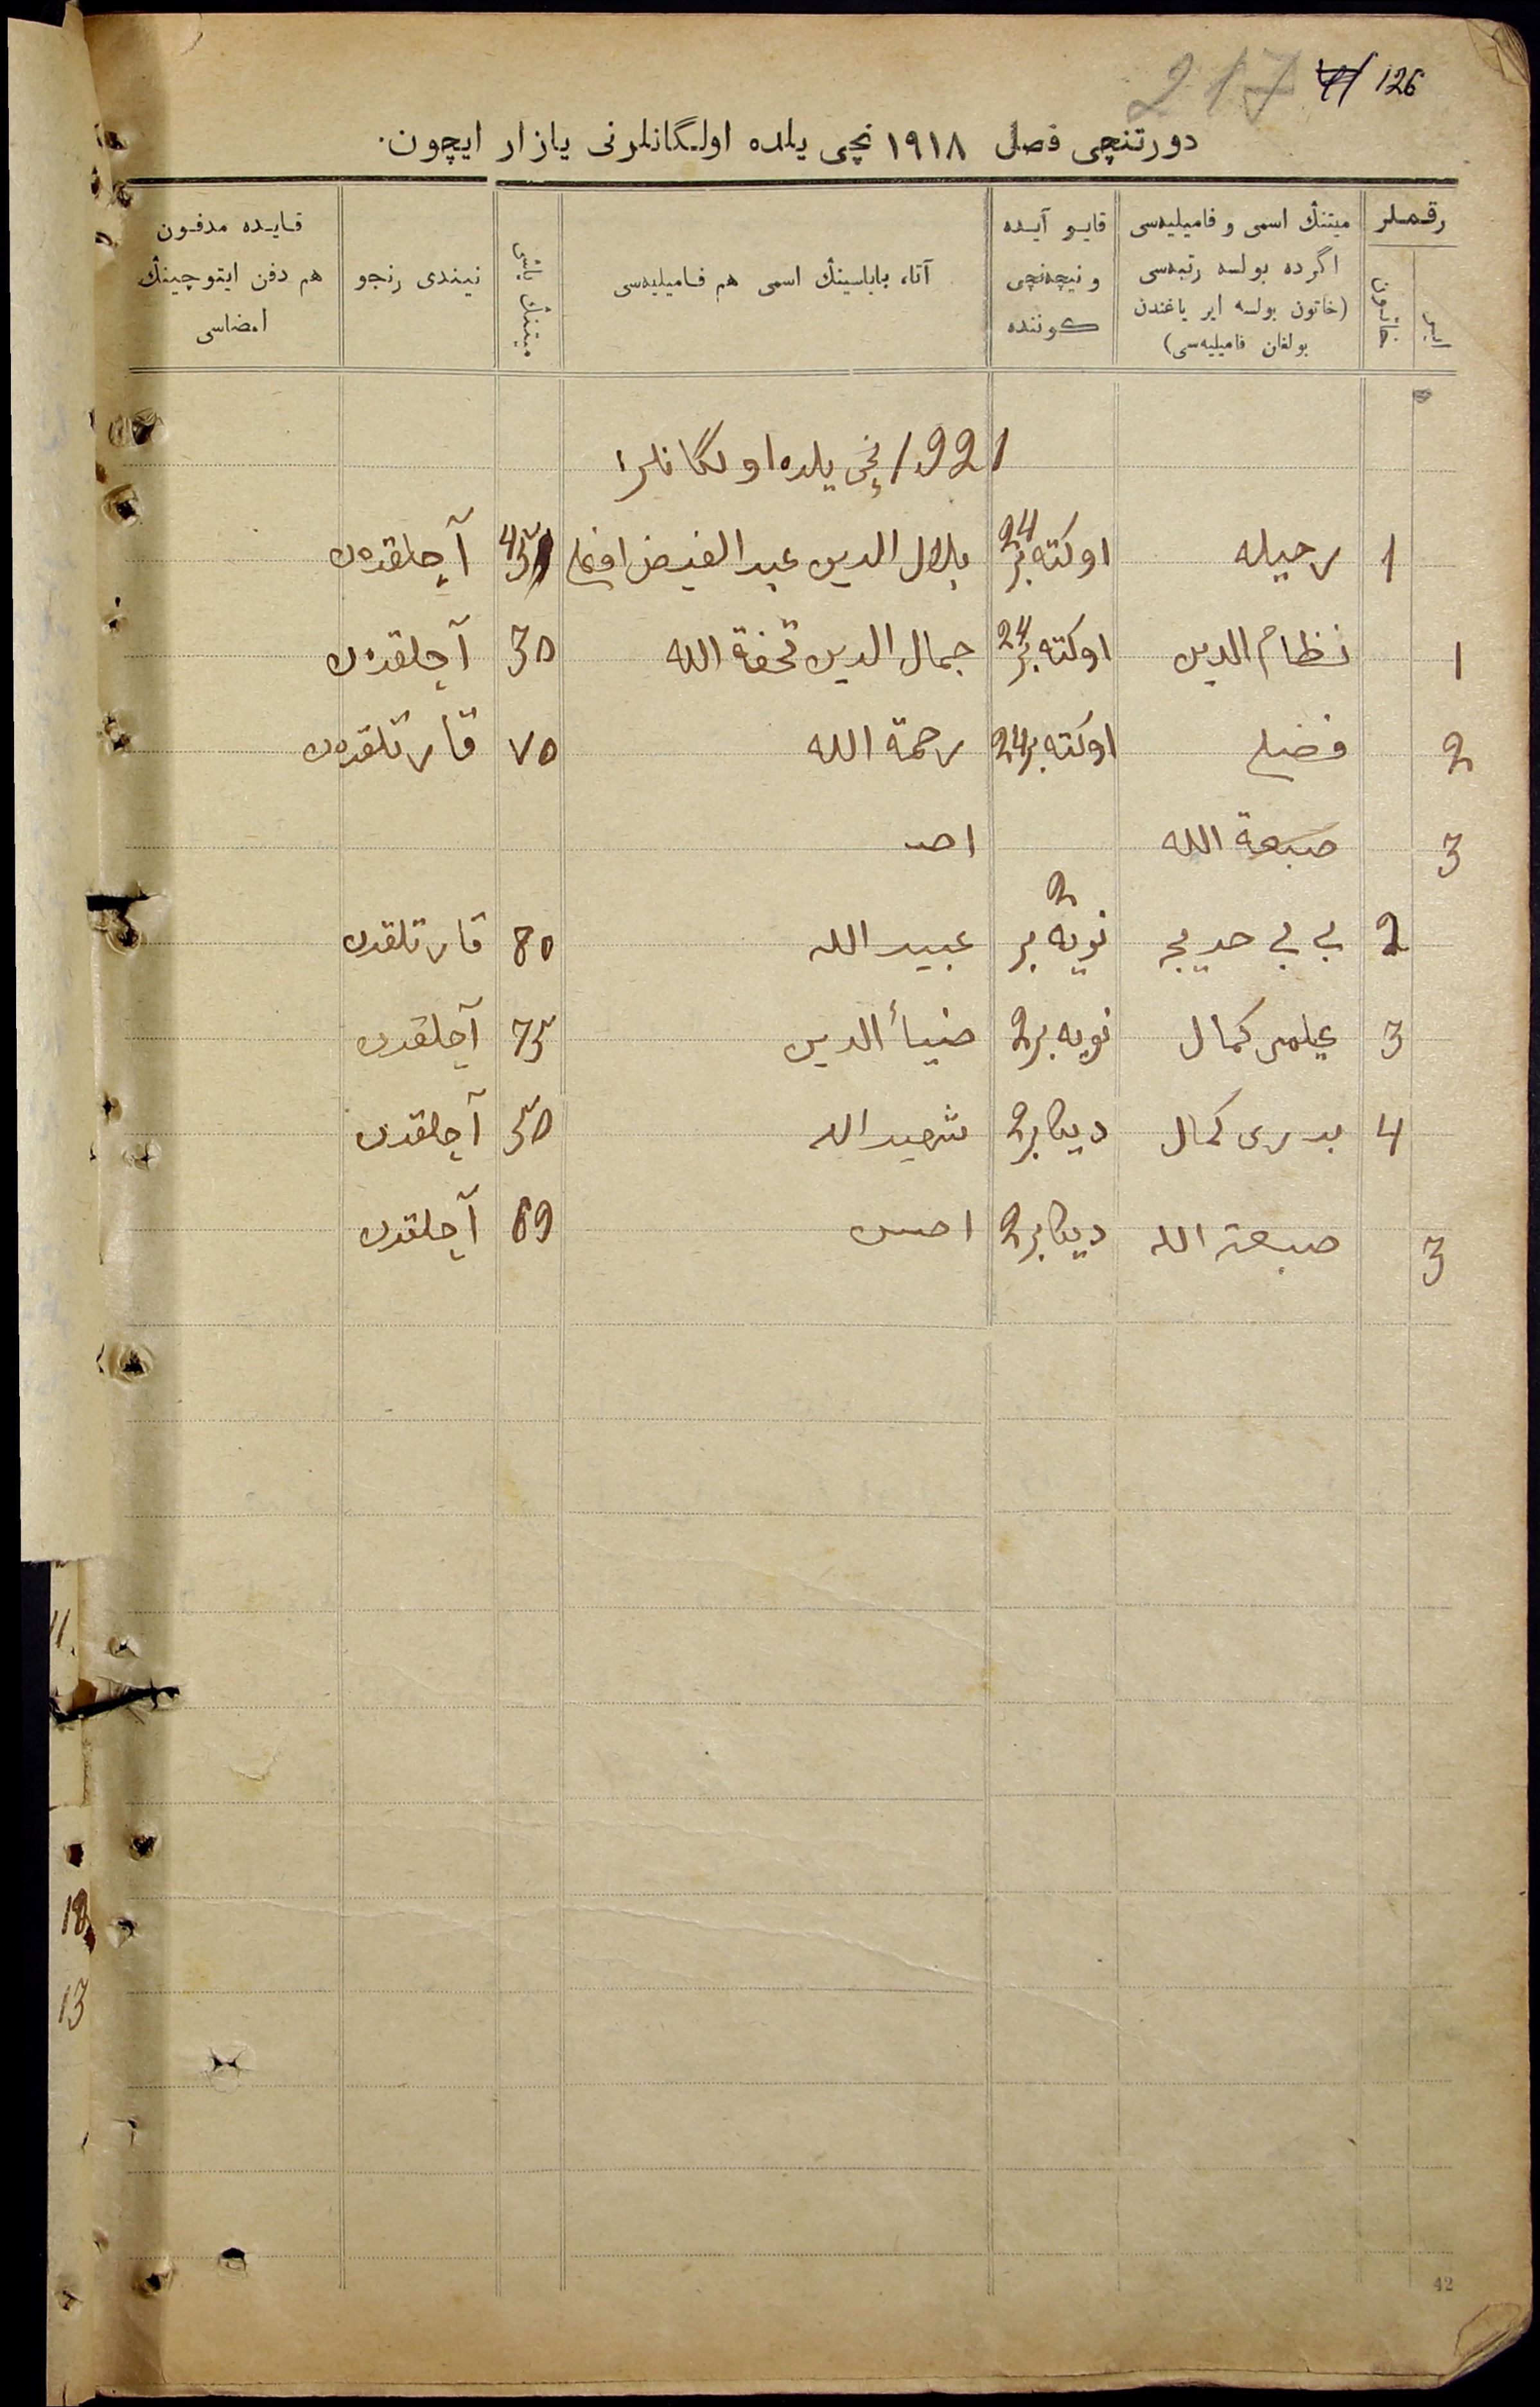 217 126
دورتنچی فصل ۱۹۱۸ نچی یلده اولگانلرنی یازار ایچون.
رقملر
ایر
خاتون
میتنڭ اسمی و فامیلیه‌سی
اگرده بولسه رتبه‌سی
(خاتون بولسه ایر یاغندن
بولغان فامیلیه‌سی)
قایو آیده
و نیچه‌نچی
کوننده
آتا، باباسینڭ اسمی هم فامیلیه‌سی
میتنڭ یاشی
نیندی رنجو
قایده مدفون
هم دفن ایتوچینڭ
امضاسی
1921 نچی یلده اولگانلر
1 رحیله اوکتەبر 24 بلال الدین عبد الفیض 45 آچلقدن
1 نظام الدین اوکتەبر 24 جمال الدین تحفة الله 30 آچلقدن
2 اوکتەبر 24 رحمة الله ۷۵ قارتلقدن
3 صبعة الله
2 بی بی نویەبر 2 عبید الله 80 قارتلقدن
3 کمال نویەبر 2 ضیاٴ الدین 75 آچلقدن
4 بدری کمال دیکابر 2 شهید الله 50 آچلقدن
3 صبعة الله دیکابر 2 احسن 69 آچلقدن
11
18
13
42